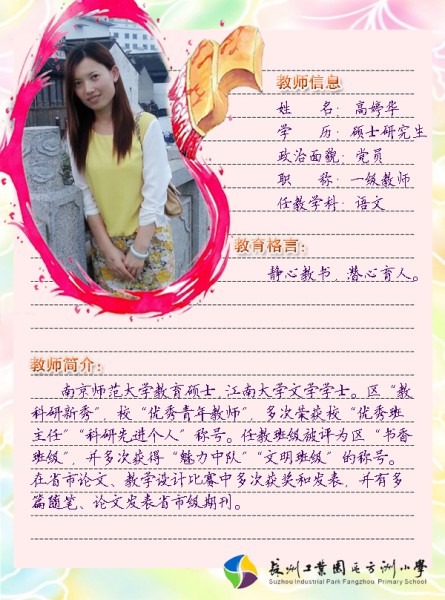 教师信息
姓 名：高婷华
学 历：硕士研究生
政治面貌：党员
职 称：一级教师
任教学科：语文
教育格言：
静心教书，潜心育人。
教师简介：
南京师范大学教育硕士,江南大学文学学士。区“教
科研新秀”，校“优秀青年教师”，多次荣获校“优秀班
主任”“科研先进个人”称号。任教班级被评为区“书香
班级”，并多次获得“魅力中队”“文明班级”的称号。
在省市论文、教学设计比赛中多次获奖和发表，并有多
篇随笔、论文发表省市级期刊。
苏州工业园区方洲小学
Suzhou Industrial Park Fangzhou Primary School